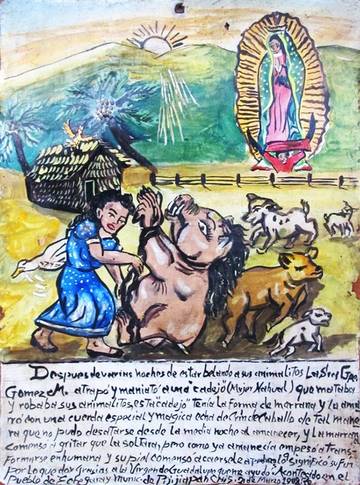 Despues de varias noches de estar belando a sus animalitos La Sra Gpe
Gomez M. atrapó y maniató a una "cadejo (Mujer Nahual) que mataba
y robaba sus animalitos esta "cadejo" Tenia La forma de marrana y la ama
rró con una cuerda espacial y magica echa de Crin de Caballo de Tail mane
ra que no pudo desatarse desde la media noche al amanecer, y La marrana
Comenso a gritar que la soltara, pero como ya amanecia empeso a trans
formarse en humana y su piel comenso a caerse de a pedaso lo significo su fin
por lo que doy Gracias a la Virgen de Guadalupe que me ayudó Acontecido en el
Pueblo de Echegaray munic de Pijijiapan Chis. 2 de Marzo